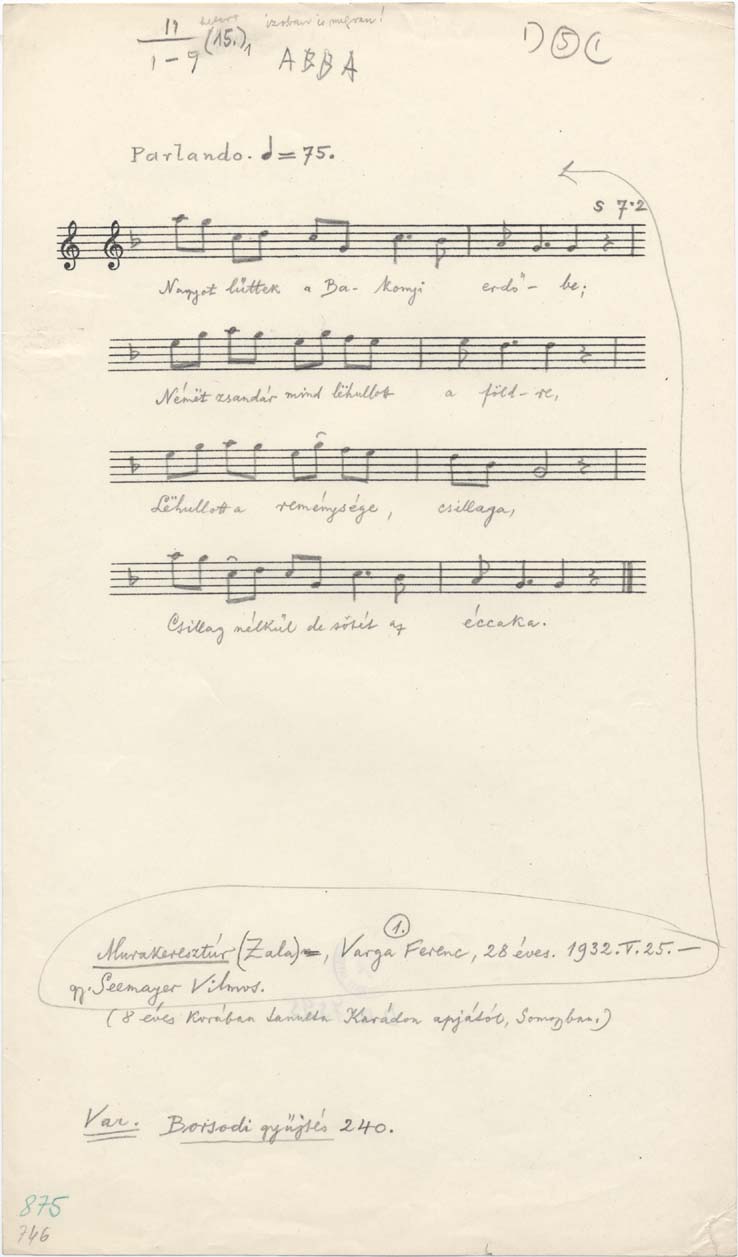 11 (15.)1
1 – 9
ABBA
1) 5 (1
Parlando. = 75.
s 7·2
Nagyot lűttek a Ba- konyi erdő- be;
Német zsandár mind lëhullott a föld-re,
Lëhullott a reménysége, csillaga,
Csillag nélkül de sötét az éccaka.
1.
Murakeresztúr (Zala), Varga Ferenc, 28 éves. 1932.V.25.–
gy. Seemayer Vilmos.
(8 éves korában tanulta Karádon apjától, Somogyban.)
Var. Borsodi gyűjtés 240.
875
746